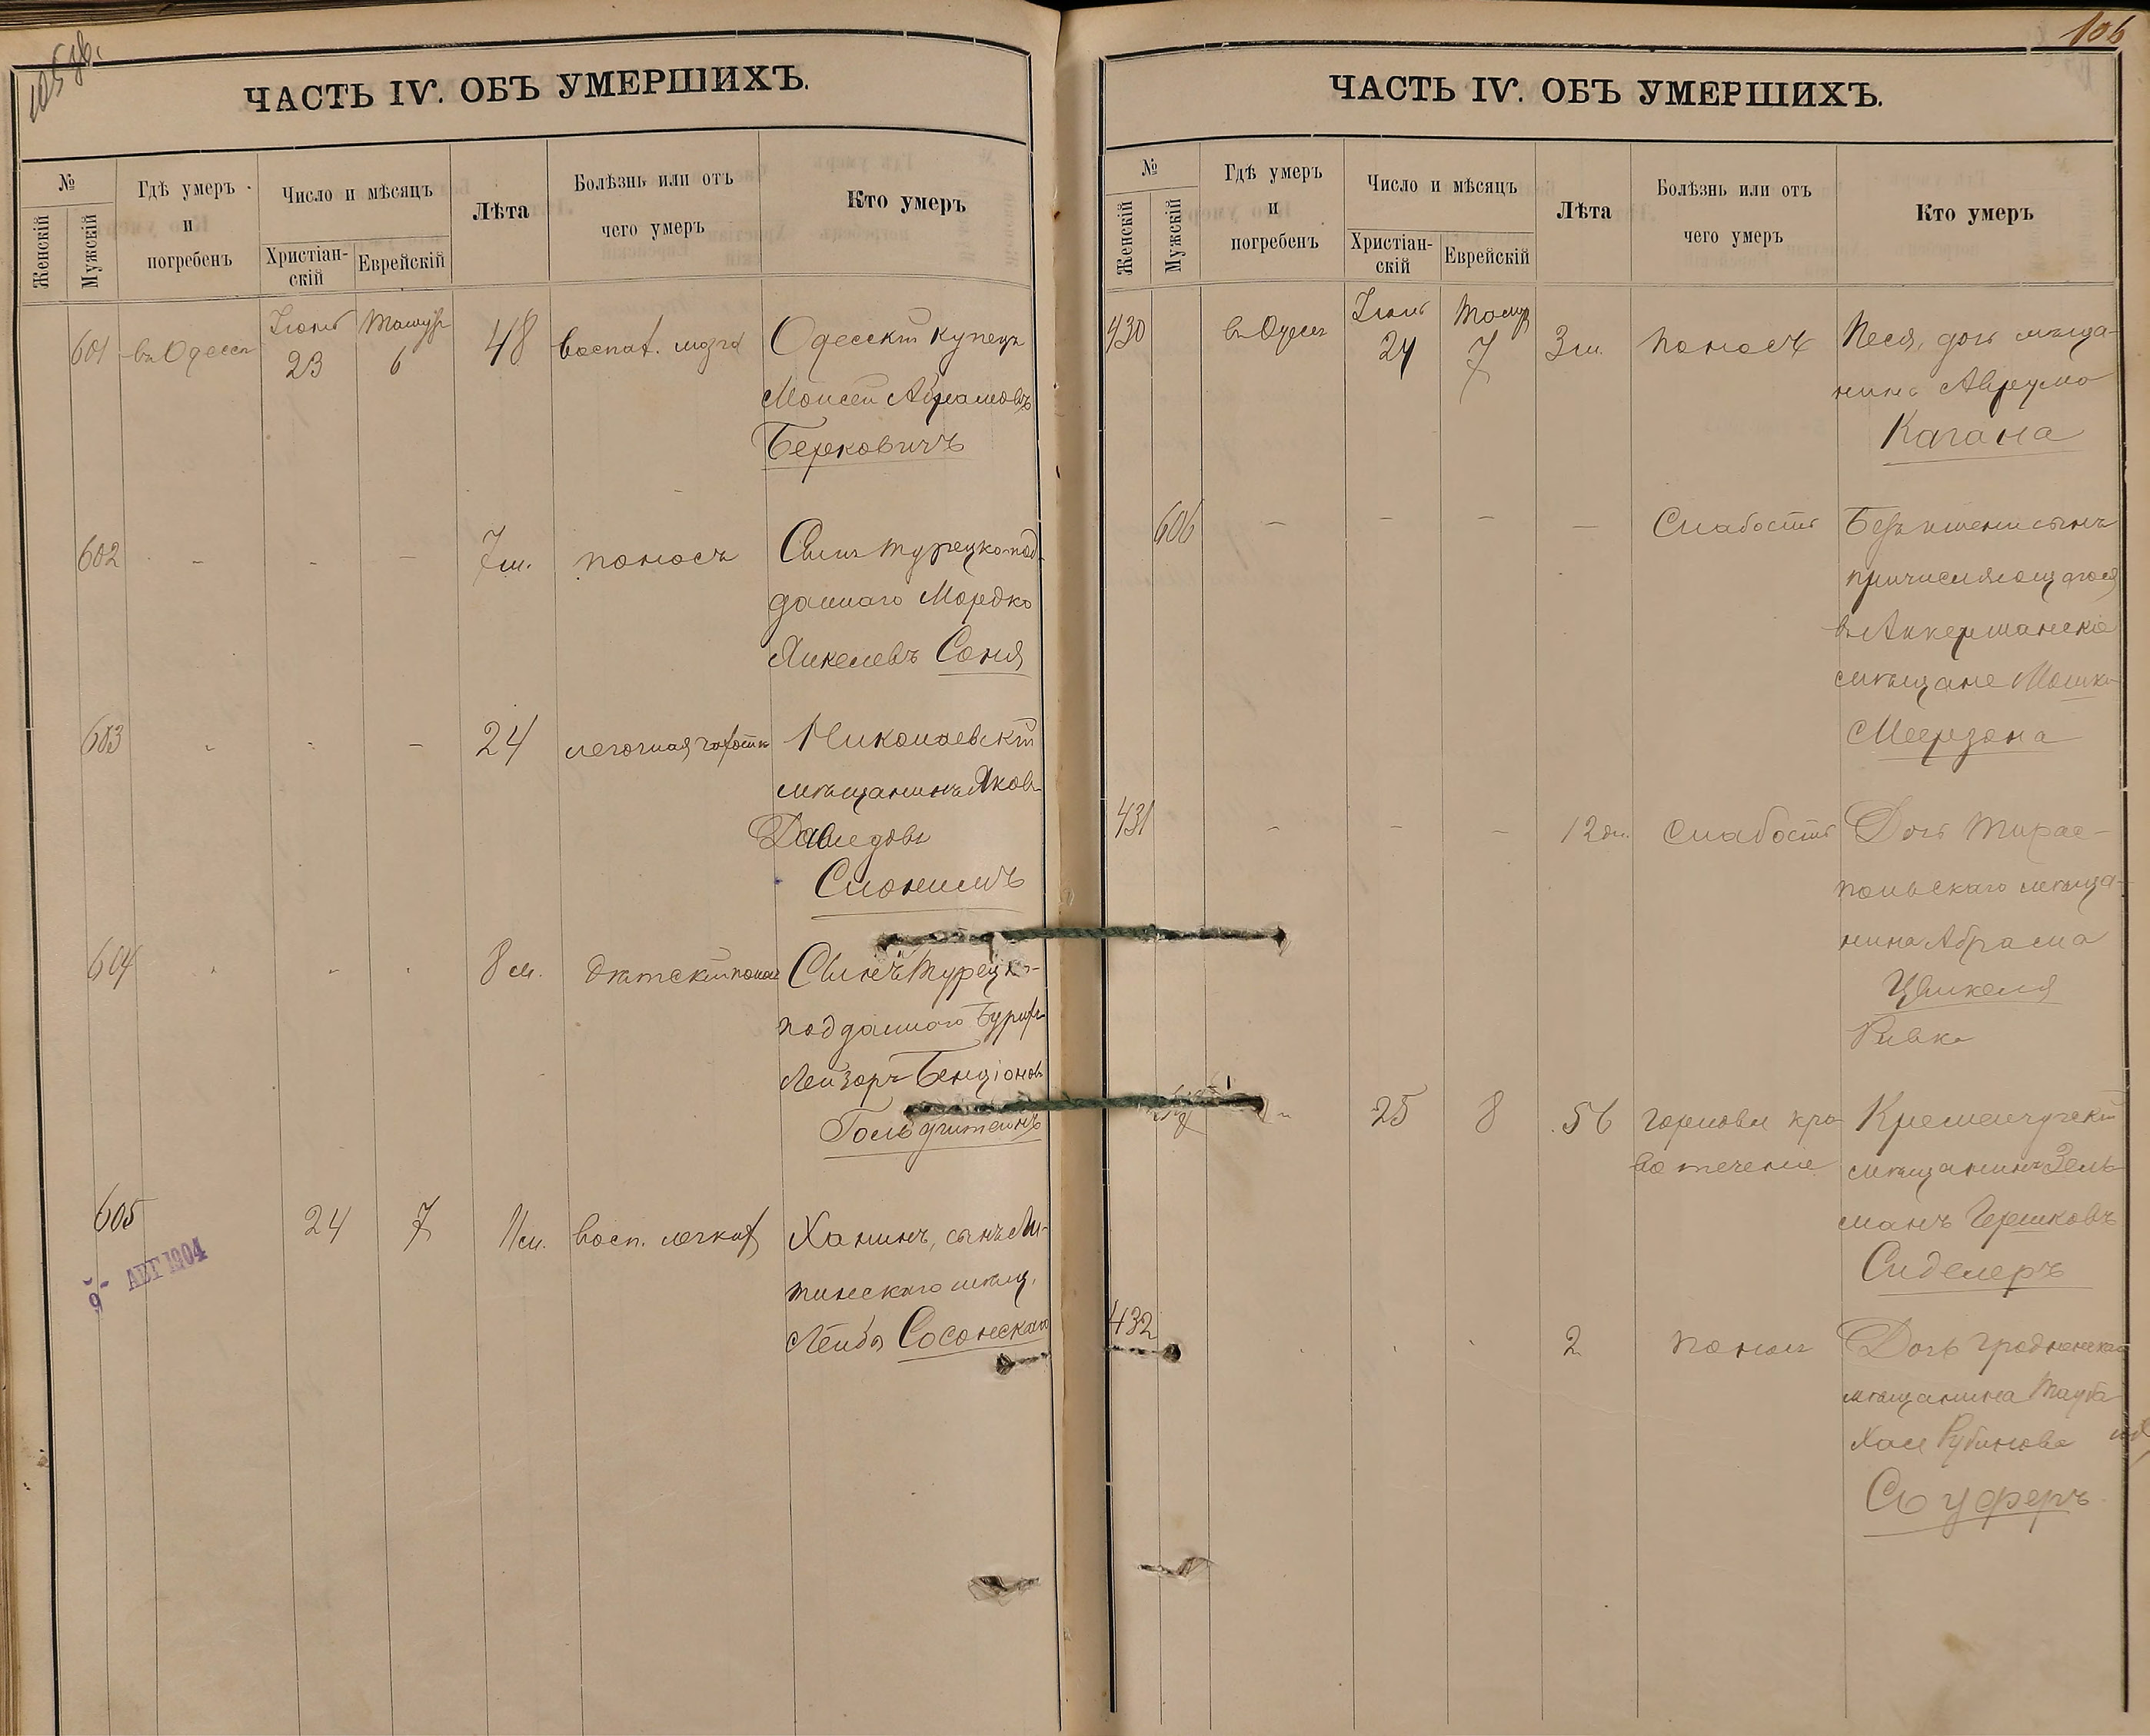 105 об.
ЧАСТЬ IV. ОБЪ УМЕРШИХЪ.
№
Женскій
Мужскій
Гдѣ умеръ
и
погребенъ
Число и мѣсяцъ
Христіан-
скій
Еврейскій
Лѣта
Болѣзнь или отъ
чего умеръ
Кто умеръ
601 въ Одессѣ Іюнь 23 Тамузъ 6 48 воспал. мозга Одесскій купецъ
Моисей Абрамовъ
Берковичъ
602 - - - 7 м. поносъ Сынъ турецко-под-
даннаго Мордко
Янкелевъ Соня
603 - - - 24 легочная чахотка Николаевскій
мѣщанинъ Яковъ
Давидовъ
Слонимъ
604 8 м. дѣтскій поносъ Сынъ Турецко-
подданнаго
Лейзоръ Бенціоновъ
Гольдштейнъ
605 24 7 11 м. восп. легких Ханинъ, сынъ Ли-
тинскаго мѣщ.
Лейба Сосонскаго
9- АВГ 1904
106
ЧАСТЬ IV. ОБЪ УМЕРШИХЪ.
№
Женскій
Мужскій
Гдѣ умеръ
и
погребенъ
Число и мѣсяцъ
Христіан-
скій
Еврейскій
Лѣта
Болѣзнь или отъ
чего умеръ
Кто умеръ
430 въ Одессѣ Іюнь 24 Тамуз 7 3 м. поносъ Песя, дочь мѣща-
нина Аврума
Кагана
606 - - - - Слабость Безъ имени сынъ
причисляющагося
въ Аккерманскіе
мѣщане Мошко
Меерзона
431 - - - 12 дн. Слабость Дочь Тирас-
польскаго мѣща-
нина Абрама
Цвикеля
Ривка
25 8 56 горловое кро
вотеченіе Кременчугскій
мѣщанинъ Зель
манъ Гершковъ
Сиделеръ
432 2 поносъ Дочь Гродненскаго
мѣщанина Тауба
Хая Рубинова
Соуферъ